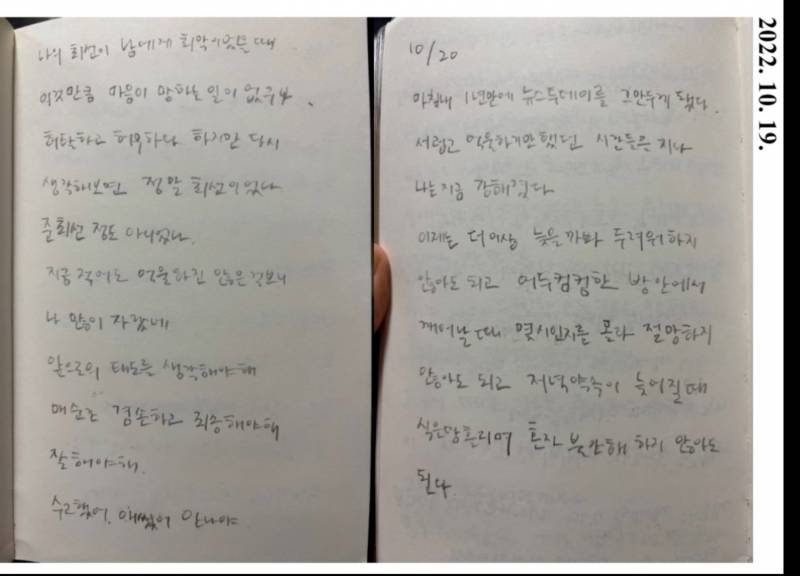 나의 최선이 남에게 최악이었을 때
이것만큼 마음이 망하는 일이 없구나.
허탈하고 허무하다 하지만 당시
생각해보면 정말 최선이었다
준최선 정도 아니었나.
지금 적어도 억울하진 않은 걸보니
나 많이 자랐네
앞으로의 태도를 생각해야해
매순간 겸손하고 죄송해야해
잘해야해.
수고했어, 애썼어 안나야
10/20
마침내 1년만에 뉴스투데이를 그만두게 됐다.
서럽고 억울하기만 했던 시간들은 지나
나는 지금 강해졌다
이제는 더이상 늦을까봐 두려워하지
않아도 되고 어두컴컴한 방 안에서
깨어날 때 몇시인지를 몰라 절망하지
않아도 되고 저녁약속이 늦어질 때
식은땀 흘리며 혼자 불안해 하지 않아도
된다.
2022. 10. 19.